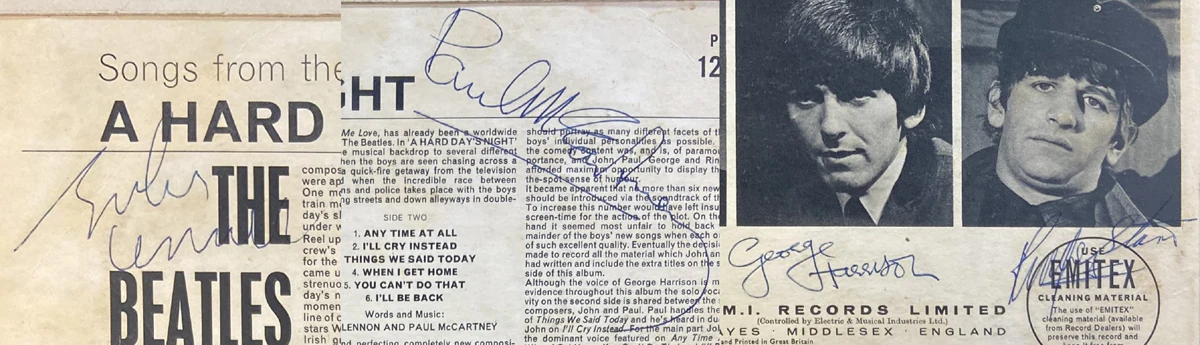 Songs from the
A HARD
John
Lennon
THE
BEATLES
compos
were ap
One m
train m
day's
under w
Reel up
crew's
for the
came u
strenuo
day's
momen
line of
stars
Irish
Paul McCartney
HT
P
12
Me Love, has already been a worldwide
The Beatles. In 'A HARD DAY'S NIGHT'
e musical backdrop to several different
hen the boys are seen chasing across a
a quick-fire getaway from the television
d when the incredible race between
ns and police takes place with the boys
ng streets and down alleyways in double-
SIDE TWO
1. ANY TIME AT ALL
2. I'LL CRY INSTEAD
THINGS WE SAID TODAY
4. WHEN I GET HOME
5. YOU CAN'T DO THAT
6. I'LL BE BACK
Words and Music:
LENNON AND PAUL McCARTNEY
nd perfecting completely new composi-
should portray as many different facets of t
boys' individual personalities as possible.
the comedy content was, and is, of paramo
portance, and John, Paul, George and Rin
afforded maximum opportunity to display th
the-spot sense of humour.
It became apparent that no more than six new
should be introduced via the soundtrack of th
To increase this number would have left insu
screen-time for the action of the plot. On the
hand it seemed most unfair to hold back
mainder of the boys' new songs when each o
of such excellent quality. Eventually the decisi
made to record all the material which John an
had written and include the extra titles on the s
side of this album.
Although the voice of George Harrison is m
evidence throughout this album the solo voca
vity on the second side is shared between the
composers, John and Paul. Paul handles the
of Things We Said Today and he's heard in du
John on I'll Cry Instead. For the main part Jo
the dominant voice featured on Any Time
George
Harrison
Ringo Starr
M.I. RECORDS LIMITED
(Controlled by Electric & Musical Industries Ltd.)
YES · MIDDLESEX · ENGLAND
and Printed in Great Britain
USE
EMITEX
CLEANING MATERIAL
(The use of "EMITEX"
cleaning material (available
from Record Dealers) will
preserve this record and
keep it free from